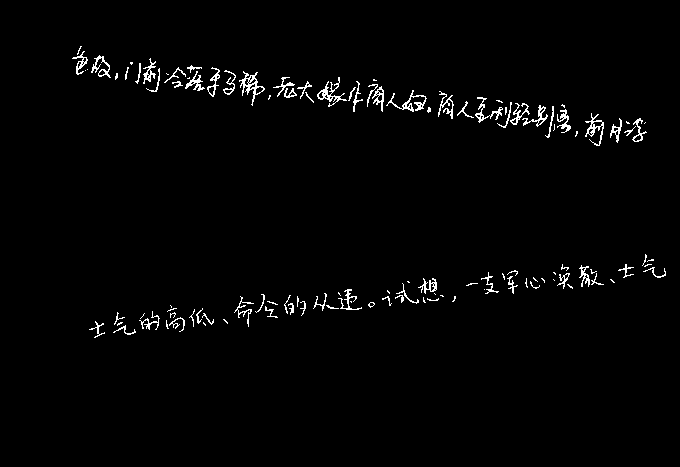 色故,门前冷落车马稀,老大嫁作商人妇。商人重利轻别离,前月浮
士气的高低、命令的从违。试想,一支军心涣散、士气